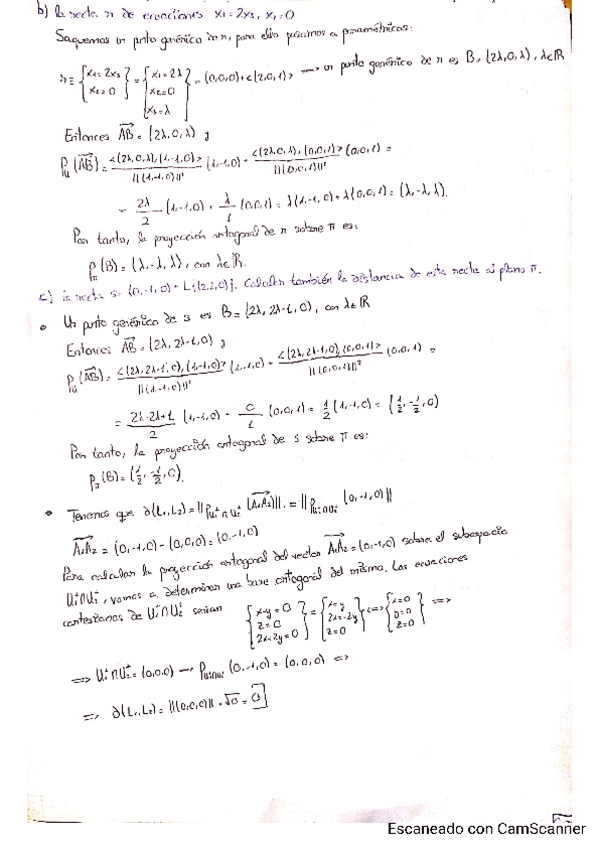 b) la recta r de ecuaciones x₁=2x₃, x₂=0
Saquemos un punto genérico de r, para ello pasamos a paramétricas:
r≡ {x₁=2x₃ x₂=0} = {x₁=2λ x₂=0 x₃=λ} = (0,0,0)+<(2,0,1)> → un punto genérico de r es B=(2λ,0,λ), λ∈ℝ
Entonces AB=(2λ,0,λ) y
P_u(AB)= <(2λ,0,λ),(1,-1,0)>/||(1,-1,0)||² (1,-1,0)+ <(2λ,0,λ),(0,0,1)>/||(0,0,1)||² (0,0,1)=
= 2λ/2 (1,-1,0)+ λ/1 (0,0,1)= λ(1,-1,0)+λ(0,0,1)=(λ,-λ,λ).
Por tanto, la proyección ortogonal de r sobre π es:
P_π(B)=(λ,-λ,λ), con λ∈ℝ.
c) la recta s: (0,-1,0)+L{(2,2,0)}. Calcular también la distancia de esta recta al plano π.
• Un punto genérico de s es B=(2λ,2λ-1,0), con λ∈ℝ
Entonces AB=(2λ,2λ-1,0) y
P_u(AB)= <(2λ,2λ-1,0),(1,-1,0)>/||(1,-1,0)||² (1,-1,0)+ <(2λ,2λ-1,0),(0,0,1)>/||(0,0,1)||² (0,0,1)=
= 2λ-2λ+1/2 (1,-1,0)+ 0/1 (0,0,1)= 1/2 (1,-1,0)=(1/2,-1/2,0)
Por tanto, la proyección ortogonal de s sobre π es:
P_π(B)=(1/2,-1/2,0).
• Tenemos que ∂(L₁,L₂)=||P_{U₁⊥∩U₂⊥}(A₁A₂)||=||P_{U₁⊥∩U₂⊥}(0,-1,0)||
A₁A₂=(0,-1,0)-(0,0,0)=(0,-1,0)
Para calcular la proyección ortogonal del vector A₁A₂=(0,-1,0) sobre el subespacio
U₁⊥∩U₂⊥, vamos a determinar una base ortogonal del mismo. Las ecuaciones
cartesianas de U₁⊥∩U₂⊥ serían {x-y=0 z=0 2x+2y=0} = {x=y 2x=-2y z=0} <=> {x=0 y=0 z=0} =>
=> U₁⊥∩U₂⊥=(0,0,0) → P_{U₁⊥∩U₂⊥}(0,-1,0)=(0,0,0) =>
=> ∂(L₁,L₂)=||(0,0,0)||=√0=0
Escaneado con CamScanner